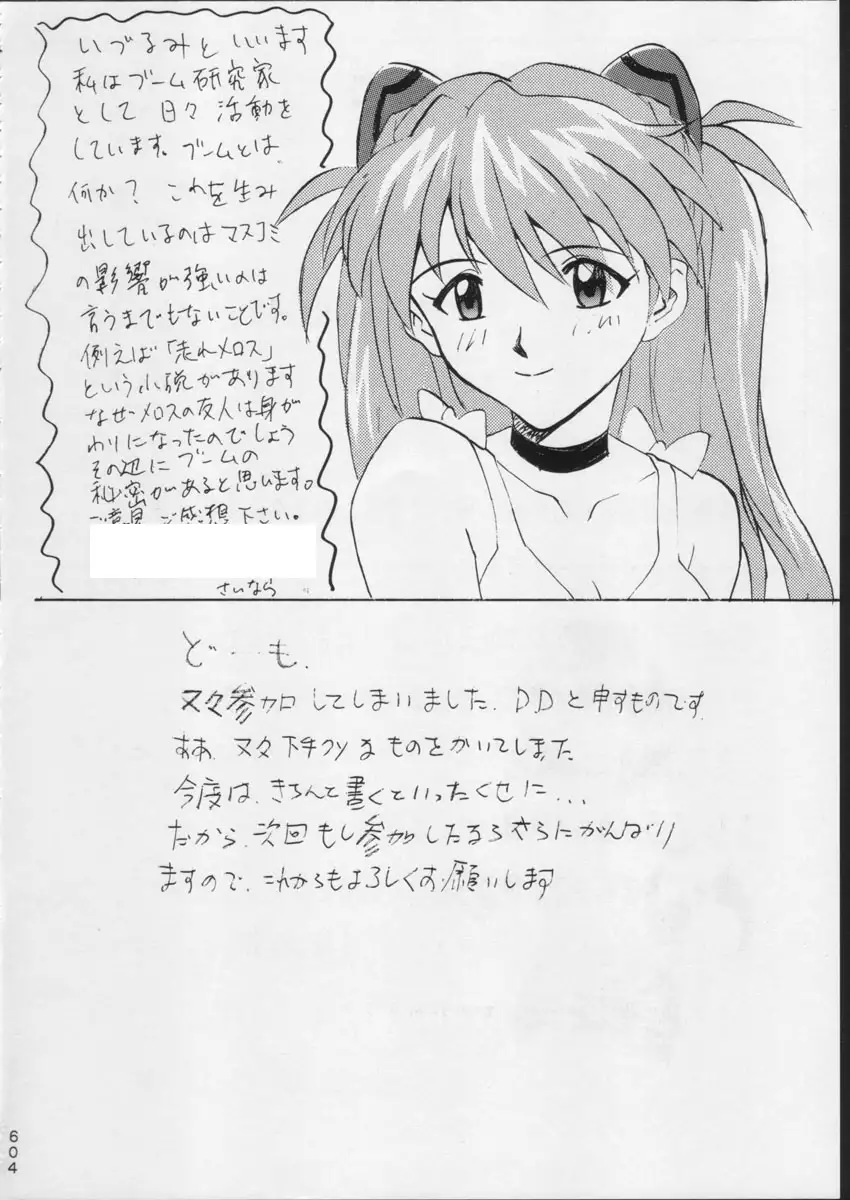 いづるみと いいます
私はブーム研究家
として 日々 活動を
しています。ブームとは
何か? これを生み
出しているのはマスコミ
の影響が強いのは
言うまでもないことです。
例えば「走れメロス」
という小説があります
なぜメロスの友人は身が
わりになったのでしょう
その辺にブームの
秘密があると思います。
ご意見、ご感想下さい。
さいなら
ど…も、
又々参加してしまいました、DDと申すものです
ああ、又々下手クソなものをかいてしまた
今度は、きちんと書くといったくせに...
だから、次回もし参加したなら さらにがんばり
ますので、これからもよろしくお願いします
604